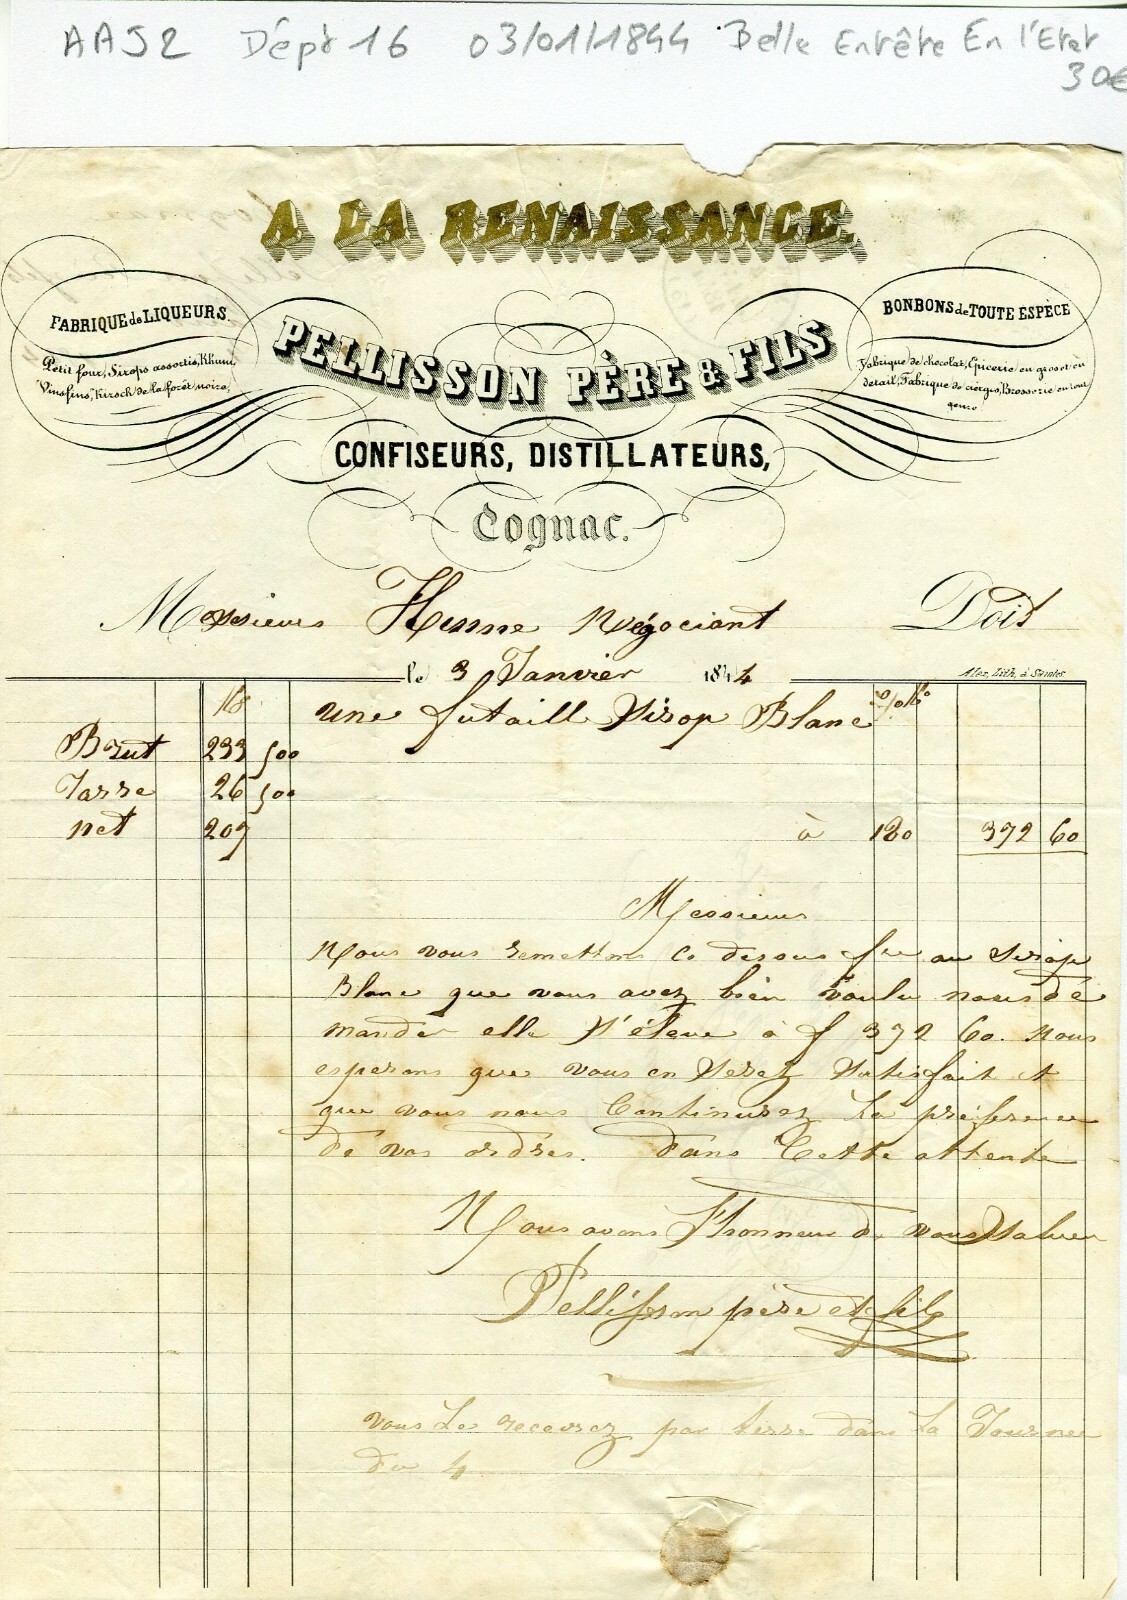 AA52 Dépt 16 03/01/1844 Belle Entête En l'Etat
30€
A LA RENAISSANCE.
FABRIQUE de LIQUEURS.
Petit four, Sirops assortis, Rhum
Vins fins, Kirsch de la forêt noire,
PELLISSON PÈRE & FILS
BONBONS de TOUTE ESPÈCE
Fabrique de chocolat, Epicerie en gros et en
detail, Fabrique de cierges, Brosserie en tout
genre
CONFISEURS, DISTILLATEURS,
Cognac.
Messieurs négociant Doit
le 3 Janvier 1844
Lith. à Saintes
Ko une futaill Sirop Blanc
Brut 233 500
Tarre 26 500
net 207 à 180 372 60
Messieurs
Nous vous remettons ci dessus fre au Sirop
Blanc que vous avez bien voulu nous dé
mander elle s'éleve à f 372 60. Nous
esperons que vous en serez satisfait et
que vous nous continurez la préférence
de vos ordres. dans cette attente
Nous avons l'honneur de vous saluer
Pellisson père et fils
vous le recevrez par terre dans la Journee
du 4